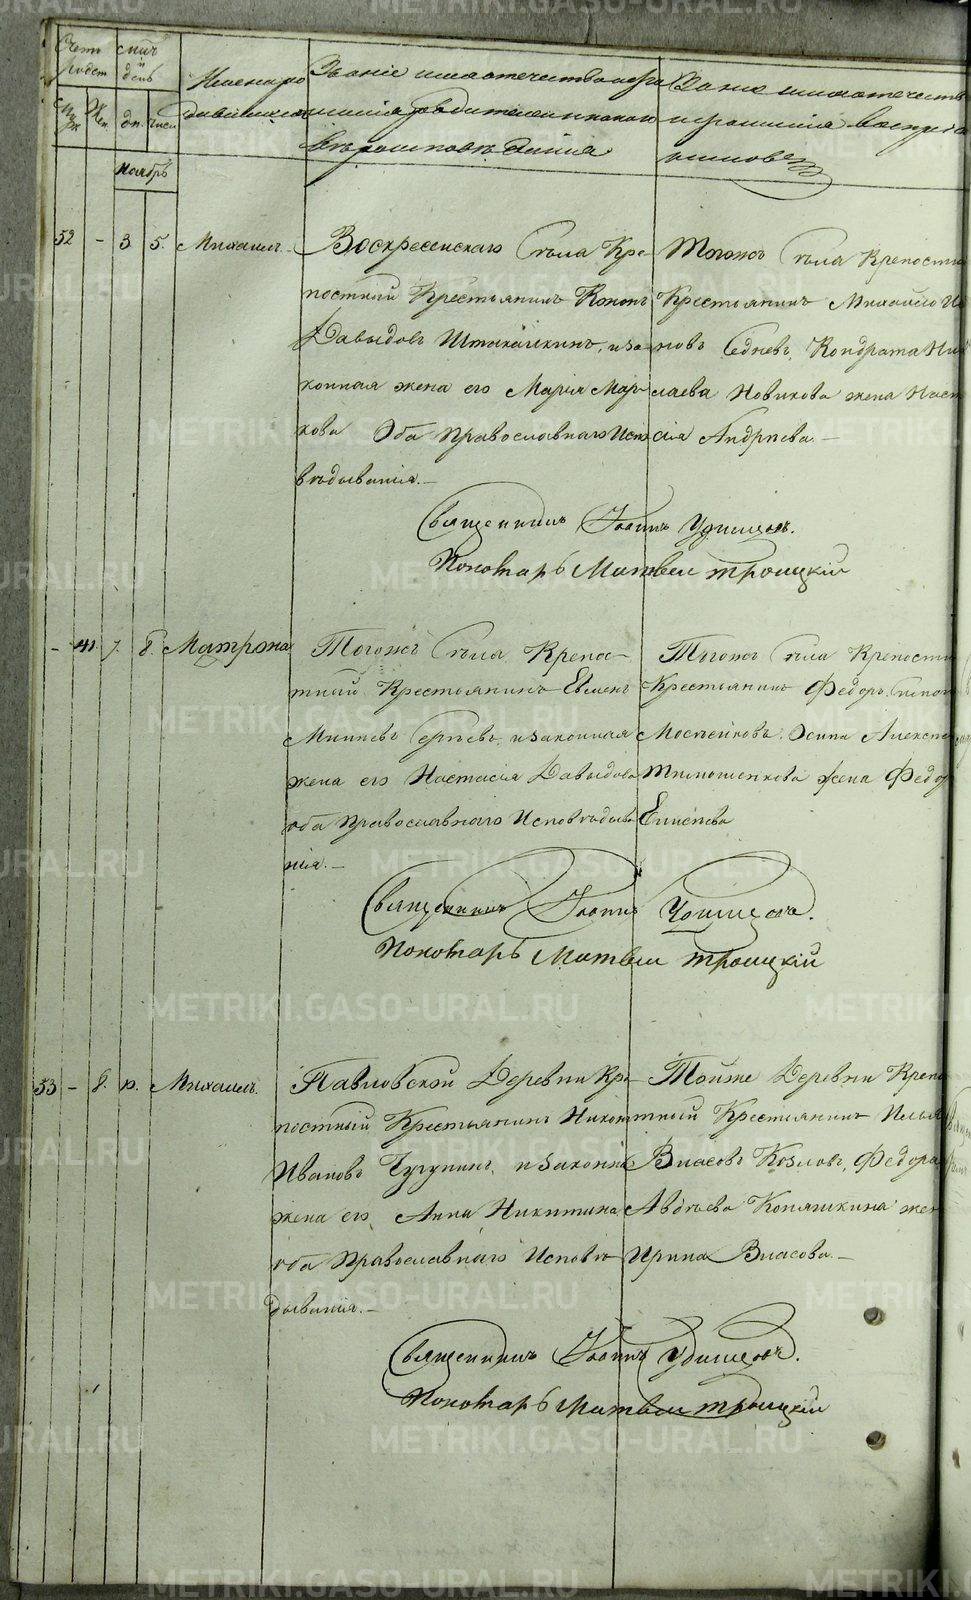 METRIKI.GASO-URAL.RU
Счетъ
родст
мѣсц
и
день
Имена ро
дившихся
Званіе имя отечество и фа
милія родителей и какого
вѣроисповѣданія
Званіе имя отечеств
и фамилія воспріе
мниковъ
Муж
Жен
дн.
числ
Ноябрь
52 - 3. 5. Михаилъ.
Воскресенскаго Села Кре
постный Крестьянинъ
Давыдовъ и за
конная жена его Марія Мар
кова Оба Православнаго Испо
вѣдыванія.-
Тогожъ Села Крепостн
Крестьянинъ Михайло И
новъ Седневъ, Кондрата Ни
лаева Новикова жена Наст
сія Андрѣева -
Священникъ Іоаннъ Удинцовъ.
Пономарь Матвей Троицкій
- 41. 7. 8. Матрона
Тогожъ Села Крепос-
тный Крестьянинъ Евменъ
Минѣевъ Сергѣевъ, и законная
жена его Настасія Давыдова
оба Православнаго Исповѣдыва
нія.-
Тогожъ Села Крепостн
Крестьянинъ Федоръ
Осипа Алексѣ
Тимошенкова жена Федо
Елисѣева
Священникъ Іоаннъ Удинцовъ.
Пономарь Матвей Троицкій
53 - 8. 10. Михаилъ.
Павловской Деревни Кре
постный Крестьянинъ Никон
Ивановъ Чугунинъ, и законна
жена его, Анна Никитина
оба Православнаго Исповѣ
дыванія.-
Тойже Деревни Крепо
тный Крестьянинъ Илья
Власовъ Козловъ, Федора
Авдѣева Копяшкина жен
Ирина Власова.-
Священникъ Іоаннъ Удинцовъ.
Пономарь Матвей Троицкій